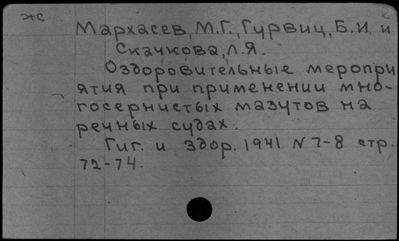 жс
Мархасев, М.Г., Гурвиц, Б.И. и
Скачкова, Л.Я.
Оздоровительные меропри
ятия при применении мно-
госернистых мазутов на
речных судах.
Гиг. и здор. 1941 N 7-8 стр.
72-74.